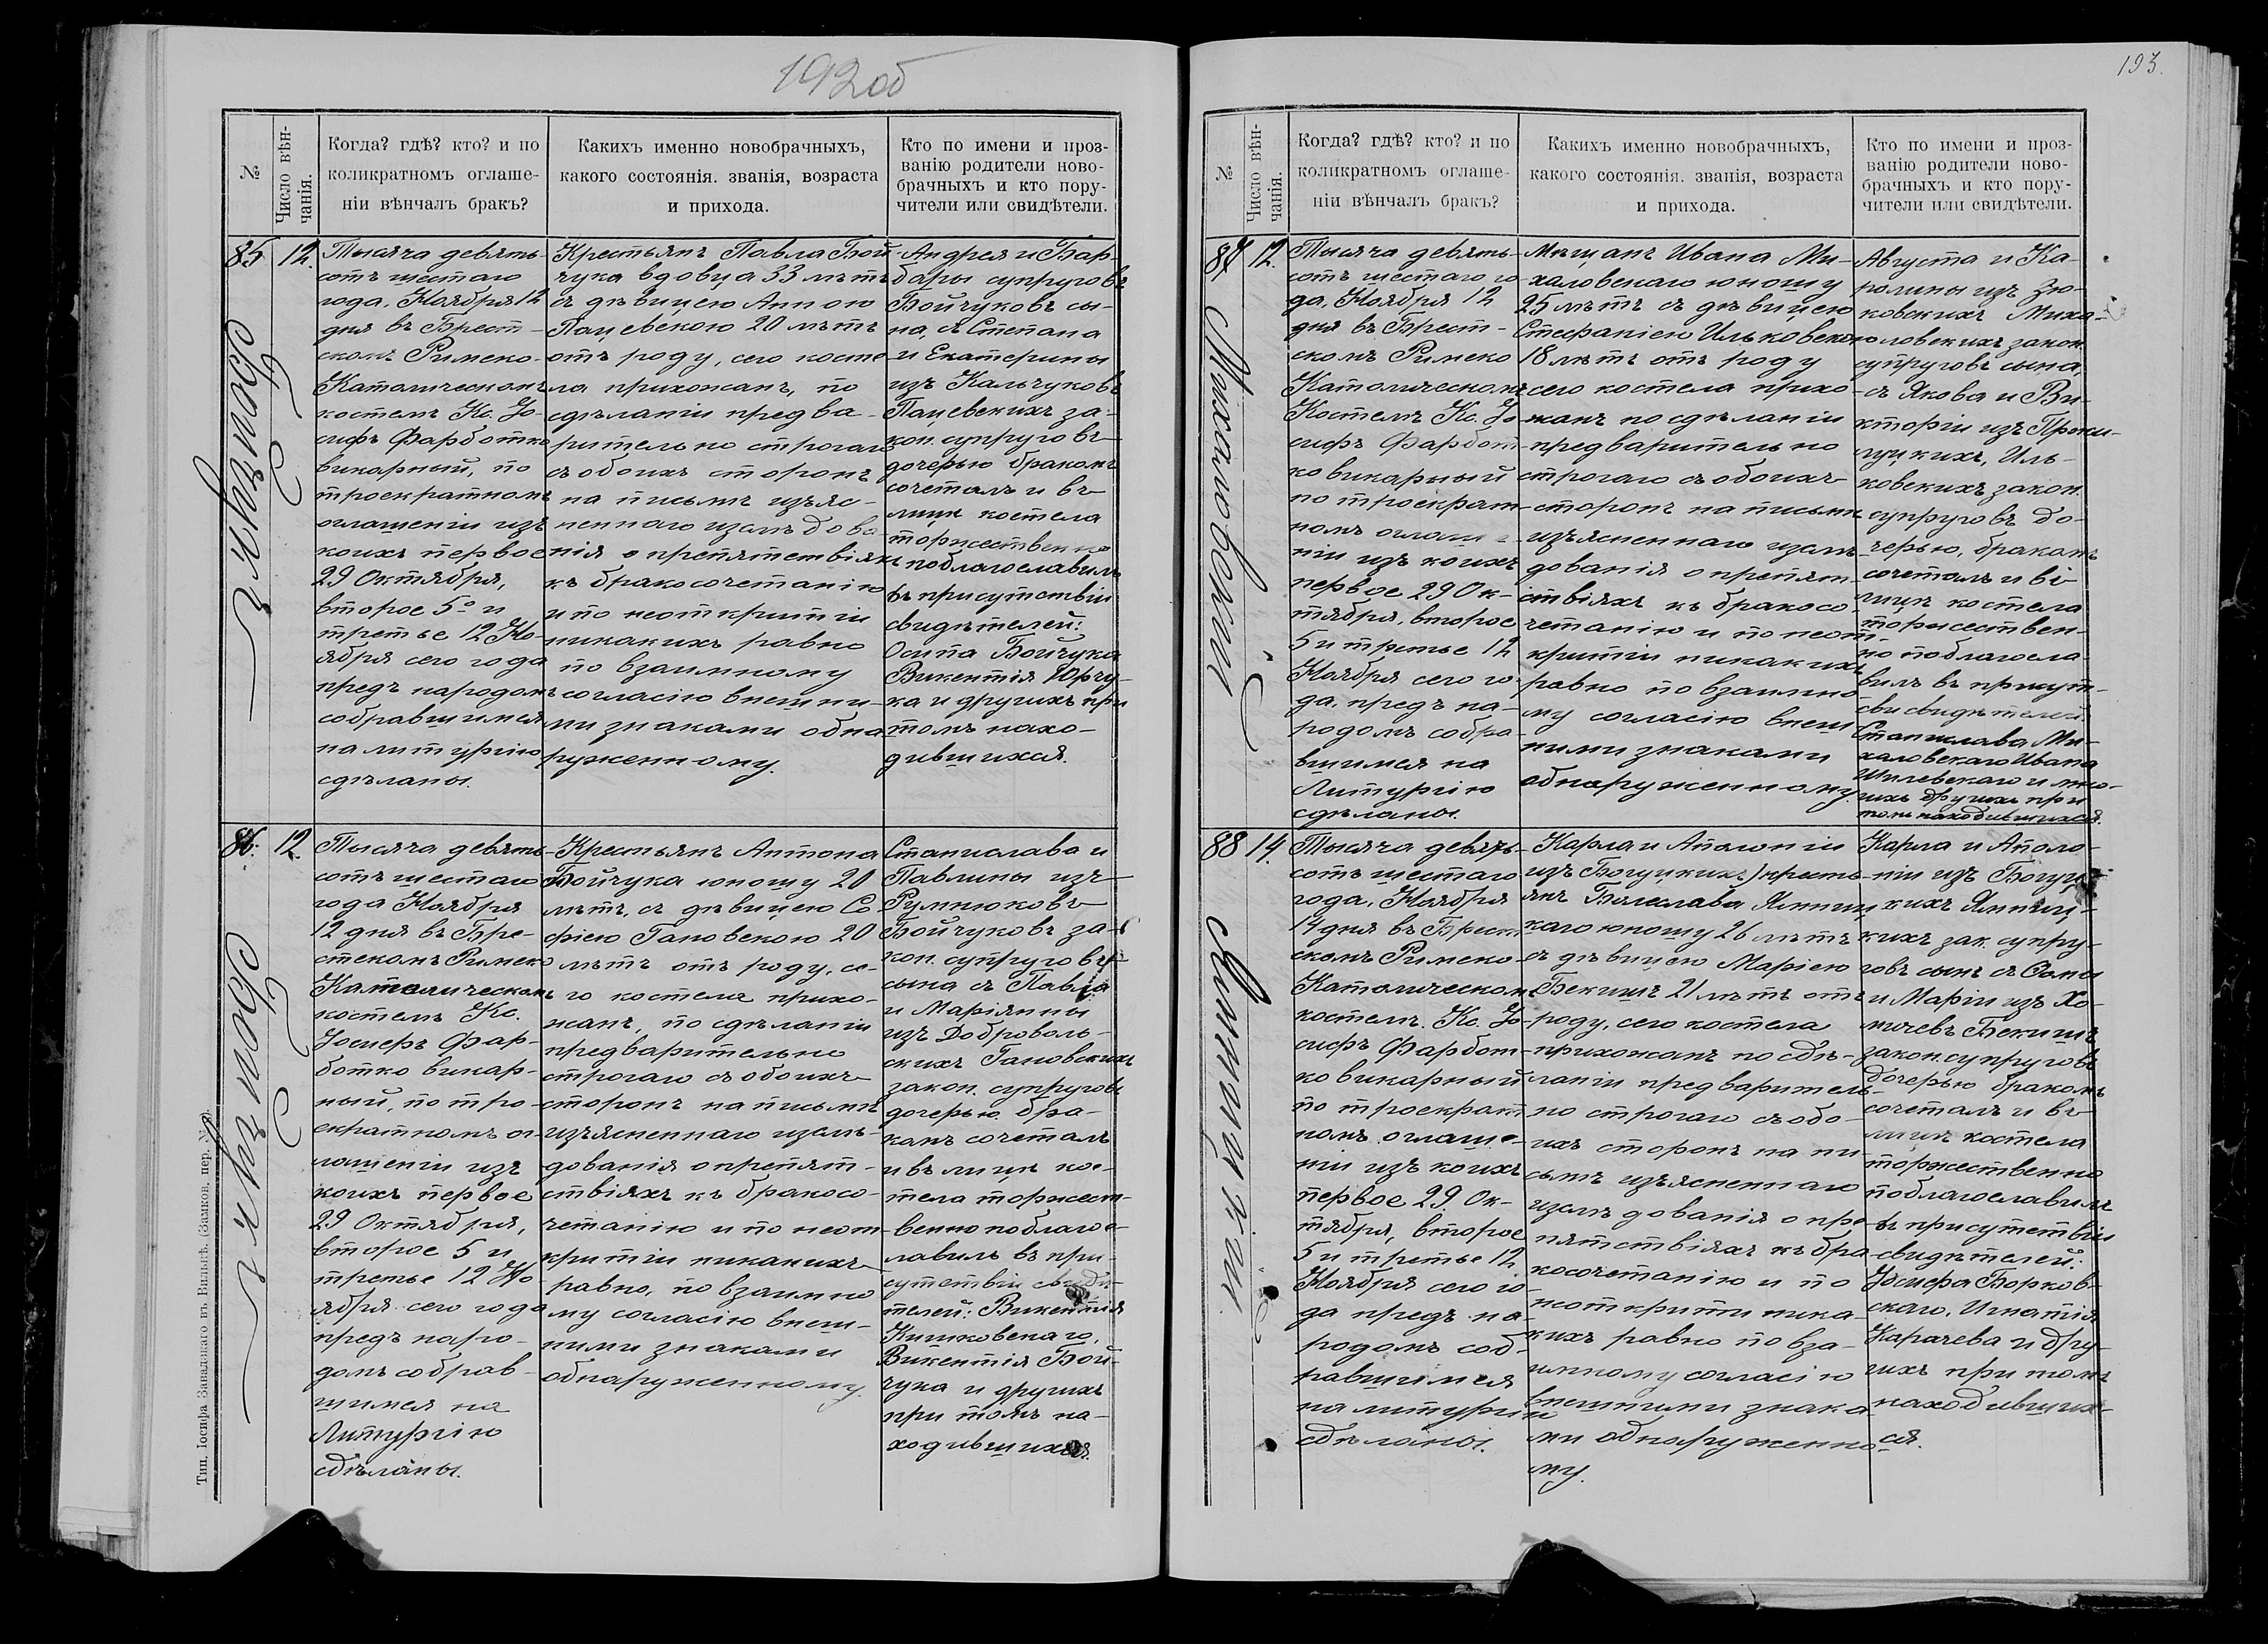 192 об
№
Число вѣн-
чанія.
Когда? гдѣ? кто? и по
коликратномъ оглаше-
ніи вѣнчалъ бракъ?
Какихъ именно новобрачныхъ,
какого состоянія. званія, возраста
и прихода.
Кто по имени и проз-
ванію родители ново-
брачныхъ и кто пору-
чители или свидѣтели.
85
12.
Бойчукъ
Тысяча девять-
сотъ шестаго
года, Ноября 12
дня въ Брест-
скомъ Римско-
Католическомъ
костелѣ Кс. Іо-
сифъ Фарботко
викарный, по
троекратномъ
оглашеніи изъ
коихъ первое
29 Октября,
второе 5º и
третье 12 Но-
ября сего года
предъ народомъ
собравшимся
на литургію
сдѣланы.
Крестьянъ Павла Бой-
чука вдовца 33 лѣтъ
съ дѣвицею Анною
Пацевскою 20 лѣтъ
отъ роду, сего косте
ла прихожанъ, по
сдѣланіи предва-
рительно строгаго
съ обоихъ сторонъ
на письмѣ изъяс-
неннаго изслѣдова
нія о препятствіяхъ
къ бракосочетанію
и по неоткритіи
никакихъ равно
по взаимному
согласію внешни-
ми знаками обна
руженному.
Андрея и Вар-
бары супруговъ
Бойчуковъ сы-
на, съ Степана
и Екатерины
изъ Кальчуковъ
Пацевскихъ за-
кон. супруговъ
дочерью бракомъ
сочеталъ и въ
лицѣ костела
торжественно
поблагославилъ
въ присутствіи
свидѣтелей:
Осипа Бойчука
Викентія Юрчу-
ка и другихъ при
томъ нахо-
дившихся.
86.
12.
Бойчукъ
Тысяча девять-
сотъ шестаго
года Ноября
12 дня въ Бре-
стскомъ Римско
Католическомъ
костелѣ Кс.
Іосифъ Фар-
ботко викар-
ный, по тро-
екратномъ ог-
лашеніи изъ
коихъ первое
29 Октября,
второе 5 и
третье 12 Но-
ября сего года
предъ наро-
домъ собрав-
шимся на
Литургію
сдѣланы.
Крестьянъ Антона
Бойчука юношу 20
лѣтъ, съ дѣвицею Со
фіею Гановскою 20
лѣтъ отъ роду, се-
го костела прихо-
жанъ, по сдѣланіи
предварительно
строгаго съ обоихъ
сторонъ на письмѣ
изъясненнаго изслѣ-
дованія о препят-
ствіяхъ къ бракосо-
четанію и по неот
критіи никакихъ
равно, по взаимно
му согласію внеш-
ними знаками
обнаруженному.
Станислава и
Павлины изъ
Румнюковъ
Бойчуковъ за-
кон. супруговъ
сына съ Павла
и Маріянны
изъ Доброволь-
скихъ Гановскихъ
закон. супруговъ
дочерью бра-
комъ сочеталъ
и въ лицѣ кос-
тела торжест-
венно поблагос-
лавилъ въ при-
сутствіи свидѣ-
телей: Викентія
Кишковскаго,
Викентія Бой-
чука и другихъ
при томъ на-
ходившихся.
Тип. Іосифа Завадзкаго въ Вильнѣ. (Замков. пер.
193.
№
Число вѣн-
чанія.
Когда? гдѣ? кто? и по
коликратномъ оглаше-
ніи вѣнчалъ бракъ?
Какихъ именно новобрачныхъ,
какого состоянія. званія, возраста
и прихода.
Кто по имени и проз-
ванію родители ново-
брачныхъ и кто пору-
чители или свидѣтели.
87
12.
Михаловскій
Тысяча девять-
сотъ шестаго го-
да, Ноября 12
дня въ Брест-
скомъ Римско
Католическомъ
Костелѣ Кс. Іо-
сифъ Фарбот-
ко викарный
по троекрат-
номъ оглаше-
ніи изъ коихъ
первое 29 Ок-
тября, второе
5 и третье 12
Ноября сего го-
да, предъ на-
родомъ собра-
вшимся на
Литургію
сдѣланы.
Мѣщанъ Ивана Ми-
халовскаго юношу
25 лѣтъ съ дѣвицею
Стефаніею Ильковскою
18 лѣтъ отъ роду
сего костела прихо-
жанъ по сдѣланіи
предварительно
строгаго съ обоихъ
сторонъ на письмѣ
изъясненнаго изслѣ
дованія о препят-
ствіяхъ къ бракосо-
четанію и по неот-
критіи никакихъ
равно по взаимно-
му согласію внеш
ними знаками
обнаруженному.
Августа и Ка-
ролины изъ Зю-
ковскихъ Миха-
ловскихъ закон
супруговъ сына,
съ Якова и Ви-
кторіи изъ Проки-
луцкихъ, Иль-
ковскихъ закон.
супруговъ до-
черью, бракомъ
сочеталъ и въ
лицѣ костела
торжествен-
но поблагосла-
вилъ въ присут-
сви свидѣтелей:
Станислава Ми-
халовскаго Ивана
Шилевскаго и мно-
гихъ другихъ при
томъ находившихся.
88
14.
Ямницкій
Тысяча девять-
сотъ шестаго
года, Ноября
14 дня въ Брест
скомъ Римско-
Католическомъ
костелѣ. Кс. Іо-
сифъ Фарбот-
ко викарный
по троекрат
номъ оглаше-
ніи изъ коихъ
первое 29 Ок-
тября, второе
5 и третье 12
Ноября сего го
да предъ на-
родомъ соб-
равшимся
на литургію
сдѣланы.
Карла и Аполоніи
изъ Богуцкихъ) кресть
янъ Болеслава Ямниц
каго юношу 26 лѣтъ
съ дѣвицею Маріею
Бекишъ 21 лѣтъ отъ
роду, сего костела
прихожанъ по сдѣ-
ланіи предваритель-
но строгаго съ обо-
ихъ сторонъ на пи-
сьмѣ изъясненнаго
изслѣдованія о пре-
пятствіяхъ къ бра
косочетанію и по
неоткрити ника-
кихъ равно по вза-
имному согласію
внешними знака
ми обнаруженно
му.
Карла и Аполо-
ніи изъ Богуц-
кихъ Ямниц-
кихъ зак. супру-
говъ сынъ съ Фомы
и Маріи изъ Хо-
мичевъ Бекишъ
закон. супруговъ
дочерью бракомъ
сочеталъ и въ
лицѣ костела
торжественно
поблагославилъ
въ присутствіи
свидѣтелей:
Іосифа Борков-
скаго, Игнатія
Карачева и дру-
гихъ при томъ
находивших-
ся.